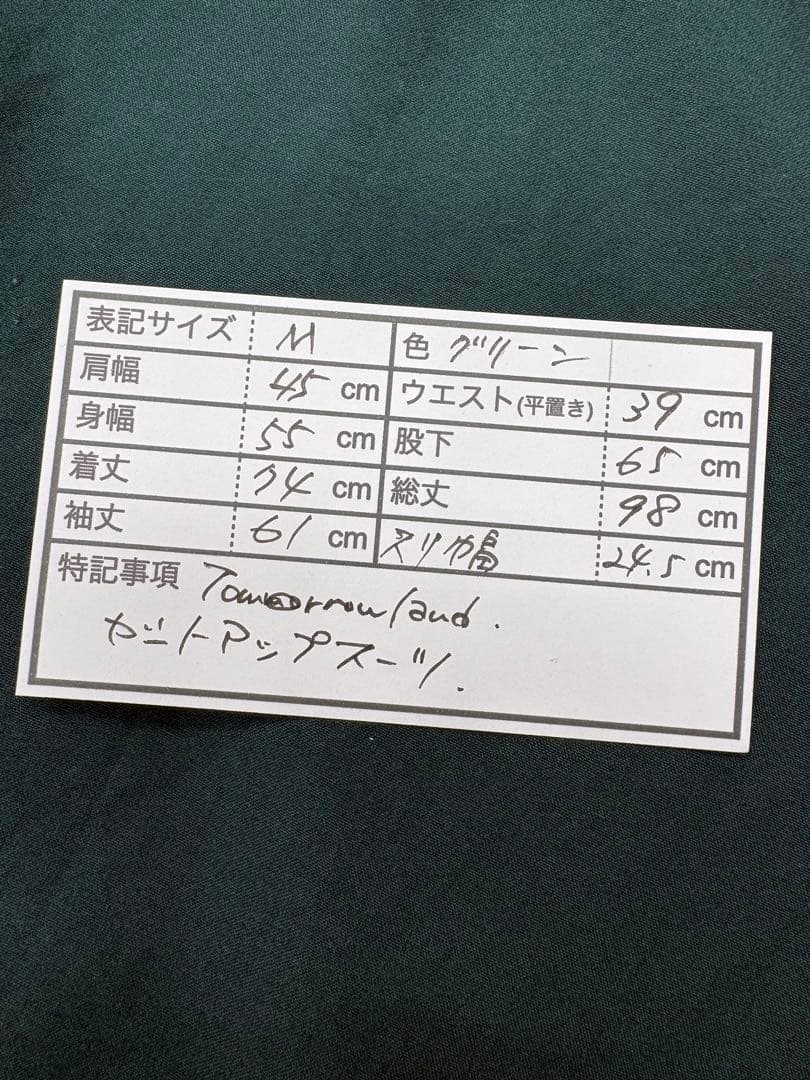 表記サイズ M 色 グリーン
肩幅 45 cm ウエスト(平置き) 39 cm
身幅 55 cm 股下 65 cm
着丈 74 cm 総丈 98 cm
袖丈 61 cm ヌリカ幅 24.5 cm
特記事項 Tomorrowland.
セットアップスーツ.